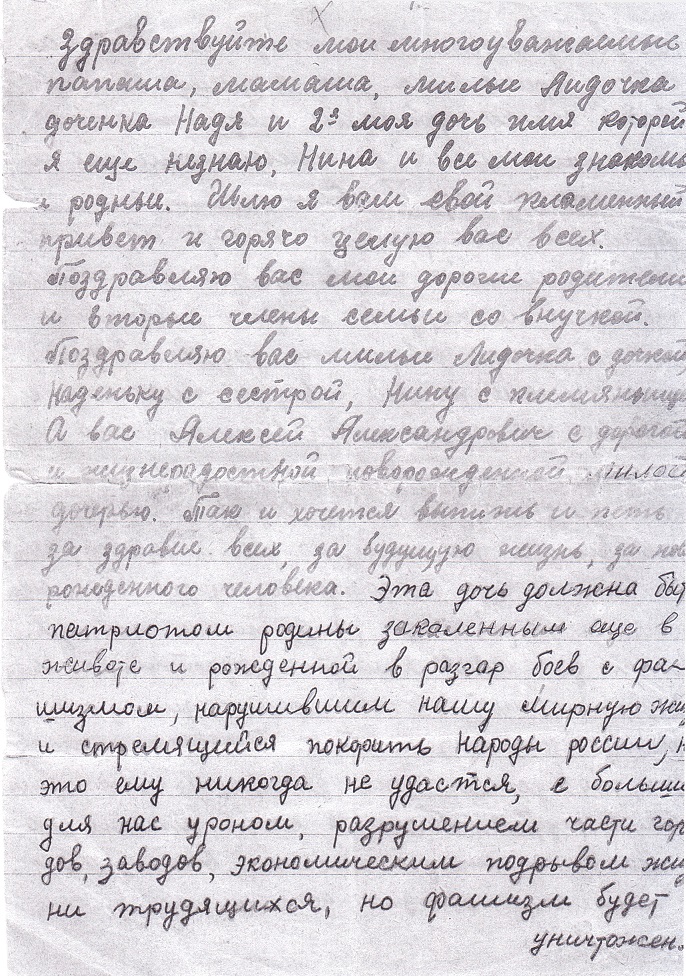 Здравствуйте мои многоуважаемые
папаша, мамаша, милые Лидочка
доченка Надя и 2я моя дочь имя которей
я еще незнаю, Нина и все мои знакомы
и родные. Шлю я вам свой пламенный
привет и горячо целую вас всех.
Поздравляю вас мои дорогие родители
и вторые члены семьи со внучкой.
Поздравляю вас милые Лидочка с дочкой,
Наденьку с сестрой, Нину с племянниц
А вас Алексей Александрович с дорогой
и жизнерадостной новорожденной милой
дочерью. Так и хочется выпить и петь
за здравие всех, за будущую жизнь, за ново
рожденного человека. Эта дочь должна быт
патриотом родины закаленным еще в
животе и рожденной в разгар боев с фа-
шизмом, нарушившим нашу мирную жи
и стремящийся покорить народы россии, н
это ему никогда не удастся, с больши
для нас уроном, разрушением части гор
дов, заводов, экономическим подрывом жи
ни трудящихся, но фашизм будет
уничтожен.